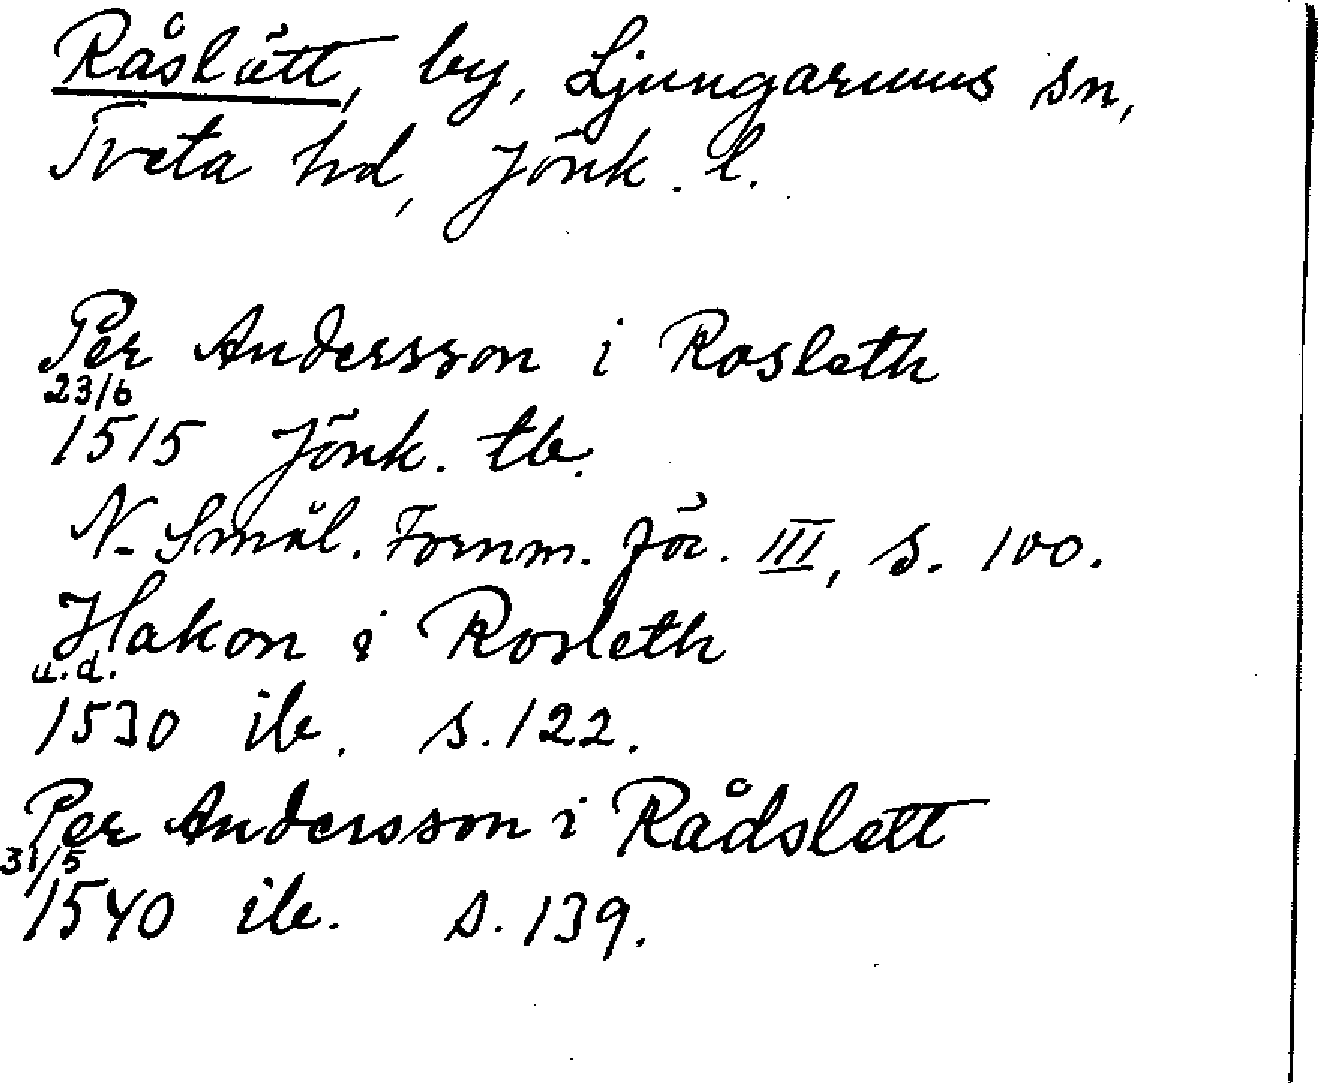 Råslätt, by, Ljungarums sn,
Tveta hd, Jönk. l.
Per Andersson i Rosleth
23/6
1515 Jönk. tb.
N. Smål. Fornm. för. III, s. 100.
Hakon i Rosleth
u.d.
1530 ib. s. 122.
Per Andersson i Rådslett
31/5
1540 ib. s. 139.